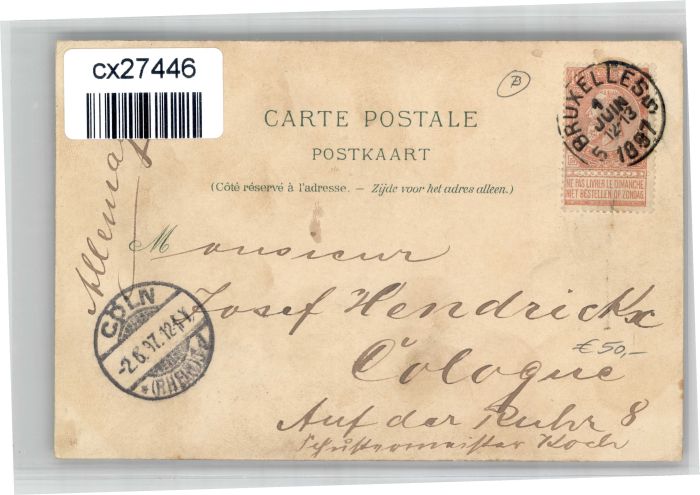 cx27446
B
CARTE POSTALE
POSTKAART
(Côté réservé à l'adresse. — Zijde voor het adres alleen.)
5 BRUXELLES 5
1
JUIN
12-13
1897
NE PAS LIVRER LE DIMANCHE
NIET BESTELLEN OP ZONDAG
Allemag
Monsieur
Josef Hendrickx
€ 50,-
Cologne
Auf der Ruhr 8
Schustermeister Koch
CÖLN
-2.6.97.12-1
* (RHEIN) *